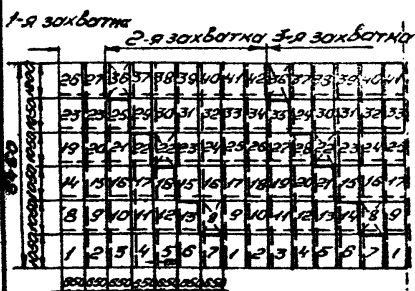 1-я захватка
2-я захватка 3-я захватка
26 27 36 37 38 39 40 41 42 36 37 38 39 40 41
23 29 30 31 32 33 34 35 29 30 31 32 33
19 20 21 22 22 23 24 25 26 27 28 22 23 24 25
14 15 16 17 18 15 16 17 18 19 20 21 15 16 17
8 9 10 11 12 13 8 9 10 11 12 13 14 8 9
1 2 3 4 5 6 7 1 2 3 4 5 6 7 1
650 650 650 650 650 650 650